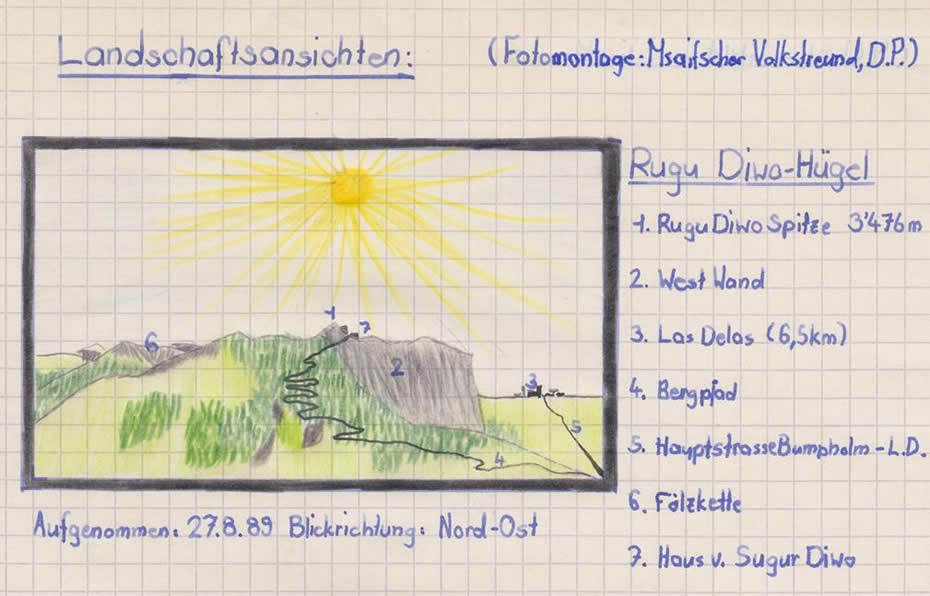 Landschaftsansichten:
(Fotomontage: Msaifscher Volksfreund, D.P.)
Rugu Diwo-Hügel
1. Rugu Diwo Spitze 3'476m
2. West Wand
3. Las Delas (6,5km)
4. Bergpfad
5. Hauptstrasse Bumpholm - L.D.
6. Fölzkette
7. Haus v. Sugur Diwo
1
7
6
2
3
5
4
Aufgenommen: 27.8.89 Blickrichtung: Nord-Ost